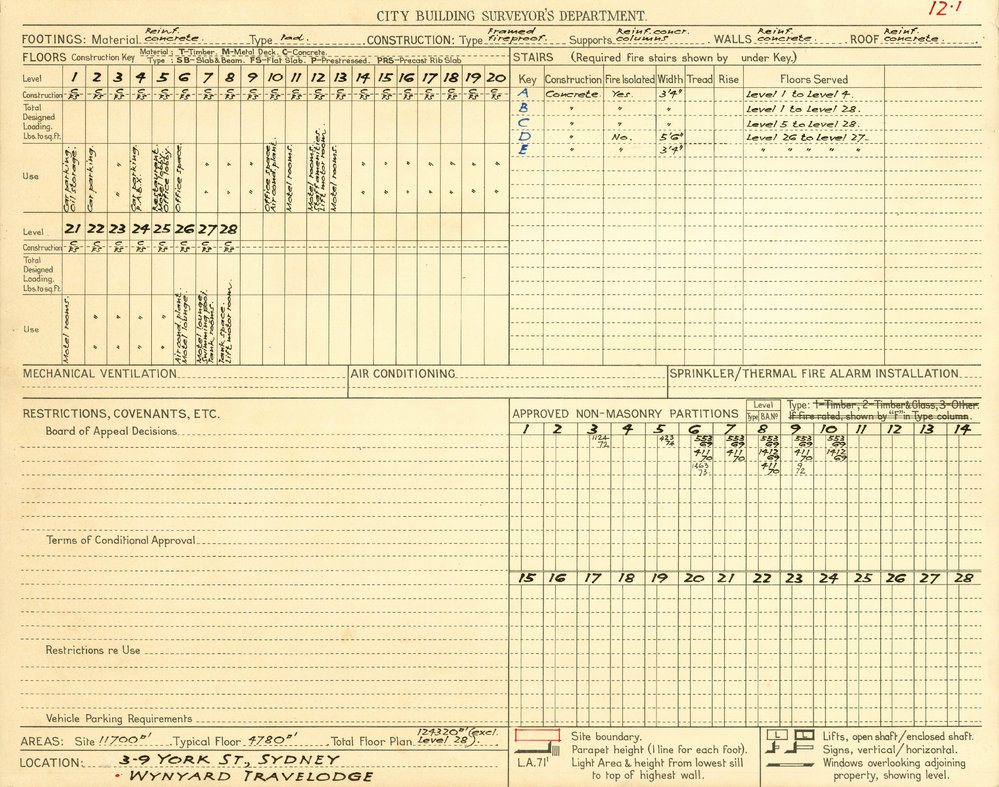 12.1
CITY BUILDING SURVEYOR'S DEPARTMENT.
FOOTINGS: Material Reinf. concrete. Type Pad. CONSTRUCTION: Type Framed fireproof. Supports Reinf. concr. columns WALLS Reinf. concrete. ROOF Reinf. concrete.
FLOORS Construction Key Material; T-Timber, M-Metal Deck, C-Concrete.
Type : SB-Slab & Beam. FS-Flat Slab. P-Prestressed. PRS-Precast Rib Slab
STAIRS (Required Fire stairs shown by under Key.)
Level 1 2 3 4 5 6 7 8 9 10 11 12 13 14 15 16 17 18 19 20
Construction C FS C FS C FS C FS C FS C FS C FS C FS C FS C FS C FS C FS C FS C FS C FS C FS C FS C FS C FS C FS
Total
Designed
Loading.
Lbs. to sq. ft.
Use
Car parking. Oil storage.
Car parking.
"
Car parking. P.A.B.X.
Restaurant. Motel lobby. Office lobby.
Office space.
" " "
Office space. Air cond. plant.
Motel rooms.
Motel rooms. Staff amenities. Lift motor room.
Motel rooms.
" " " " " " "
Level 21 22 23 24 25 26 27 28
Construction C FS C FS C FS C FS C FS C FS C FS C FS
Total
Designed
Loading.
Lbs. to sq. ft.
Use
Motel rooms.
" " " "
Air cond. plant. Motel lounge.
Motel lounge. Swimming pool. Tank rooms.
Tank space. Lift motor room.
Key Construction Fire Isolated Width Tread Rise Floors Served
A Concrete Yes. 3'4" Level 1 to Level 4.
B " " " Level 1 to Level 28.
C " " " Level 5 to Level 28.
D " No. 5'6" Level 26 to Level 27.
E " " 3'4" " " " " "
MECHANICAL VENTILATION AIR CONDITIONING SPRINKLER/THERMAL FIRE ALARM INSTALLATION
RESTRICTIONS, COVENANTS, ETC.
Board of Appeal Decisions
Terms of Conditional Approval
Restrictions re Use
Vehicle Parking Requirements
APPROVED NON-MASONRY PARTITIONS Level Type B.A.Nº Type: 1-Timber, 2-Timber & Glass, 3-Other.
If fire rated, shown by "F" in Type column.
1 2 3 4 5 6 7 8 9 10 11 12 13 14
1124 72 423 74 553 69 553 69 553 69 553 69 553 69
411 70 411 70 1412 69 411 70 1412 69
1363 73 411 70 9 72
15 16 17 18 19 20 21 22 23 24 25 26 27 28
AREAS: Site 11700▫' Typical Floor 4780▫' Total Floor Plan 124320▫' (excl. Level 28).
LOCATION: 3-9 YORK ST., SYDNEY
• WYNYARD TRAVELODGE
Site boundary.
Parapet height (1 line for each foot).
L.A.71' Light Area & height from lowest sill
to top of highest wall.
L L Lifts, open shaft/enclosed shaft.
Signs, vertical/horizontal.
Windows overlooking adjoining
property, showing level.